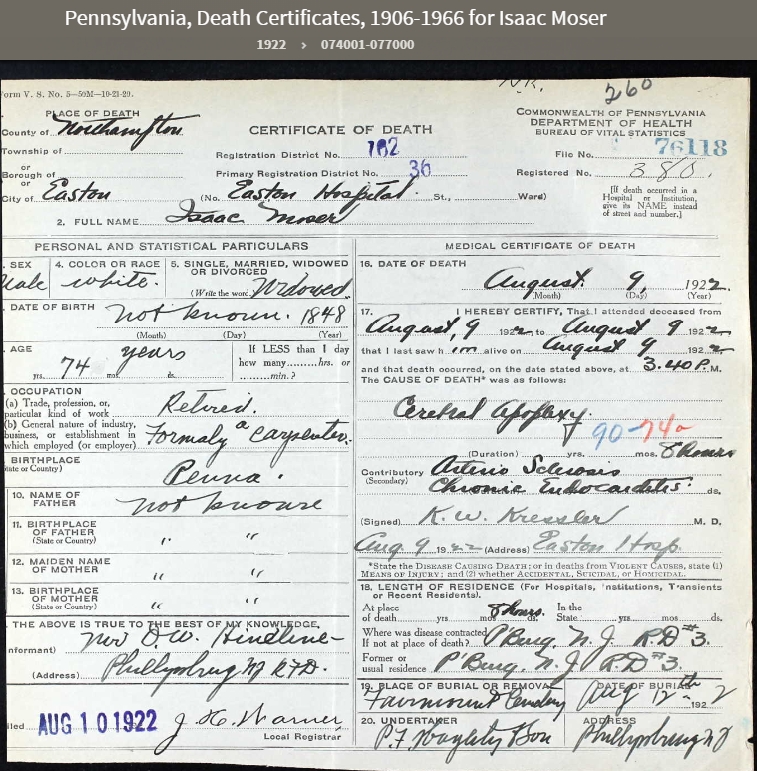 Pennsylvania, Death Certificates, 1906-1966 for Isaac Moser
1922 › 074001-077000
Form V. S. No. 5—50M—10-21-20.
260
PLACE OF DEATH
County of Northampton
Township of
or
Borough of
or
City of Easton
CERTIFICATE OF DEATH
Registration District No. 782
Primary Registration District No. 36
(No. Easton Hospital. St., Ward)
COMMONWEALTH OF PENNSYLVANIA
DEPARTMENT OF HEALTH
BUREAU OF VITAL STATISTICS
File No. 76118
Registered No. 380.
[If death occurred in a
Hospital or Institution,
give its NAME instead
of street and number.]
2. FULL NAME Isaac Moser
PERSONAL AND STATISTICAL PARTICULARS
. SEX
Male
4. COLOR OR RACE
white.
5. SINGLE, MARRIED, WIDOWED
OR DIVORCED
(Write the word) Widowed.
. DATE OF BIRTH
not known. 1848
(Month) (Day) (Year)
. AGE
74 years
yrs. mos. ds.
If LESS than 1 day
how many hrs. or
min.?
. OCCUPATION
(a) Trade, profession, or,
particular kind of work Retired.
(b) General nature of industry,
business, or establishment in
which employed (or employer) Formaly a Carpenter.
. BIRTHPLACE
(State or Country) Penna.
10. NAME OF
FATHER not knowe
11. BIRTHPLACE
OF FATHER
(State or Country) " "
12. MAIDEN NAME
OF MOTHER " "
13. BIRTHPLACE
OF MOTHER
(State or Country) " "
. THE ABOVE IS TRUE TO THE BEST OF MY KNOWLEDGE,
nformant) O. W. Hineline
(Address) Phillipsburg NJ RFD.
iled AUG 10 1922 Warner
Local Registrar
MEDICAL CERTIFICATE OF DEATH
16. DATE OF DEATH
August. 9, 1922.
(Month) (Day) (Year)
17. I HEREBY CERTIFY, That I attended deceased from
August, 9 1922 to August 9 1922
that I last saw him alive on August 9 1922
and that death occurred, on the date stated above, at 3.40 P. M.
The CAUSE OF DEATH* was as follows:
Cerebral Apoplexy.
90-74a
(Duration) yrs. mos. 8 hours
Contributory Arterio Sclerosis
(Secondary) Chronic Endocarditis. ds.
(Signed) K. W. Kressler M. D.
Aug 9 1922 (Address) Easton Hosp.
*State the DISEASE CAUSING DEATH; or in deaths from VIOLENT CAUSES, state (1)
MEANS OF INJURY; and (2) whether ACCIDENTAL, SUICIDAL, or HOMICIDAL.
18. LENGTH OF RESIDENCE (For Hospitals, Institutions, Transients
or Recent Residents).
At place
of death yrs. 8 hours. ds.
In the
State yrs. mos. ds.
Where was disease contracted
If not at place of death? P'Burg, N. J R.D #3.
Former or
usual residence P'Burg. N. J R.D #3.
19. PLACE OF BURIAL OR REMOVAL
Fairmount Cemetery
DATE OF BURIAL
Aug 12th 1922
20. UNDERTAKER
& Son
ADDRESS
Phillipsburg NJ